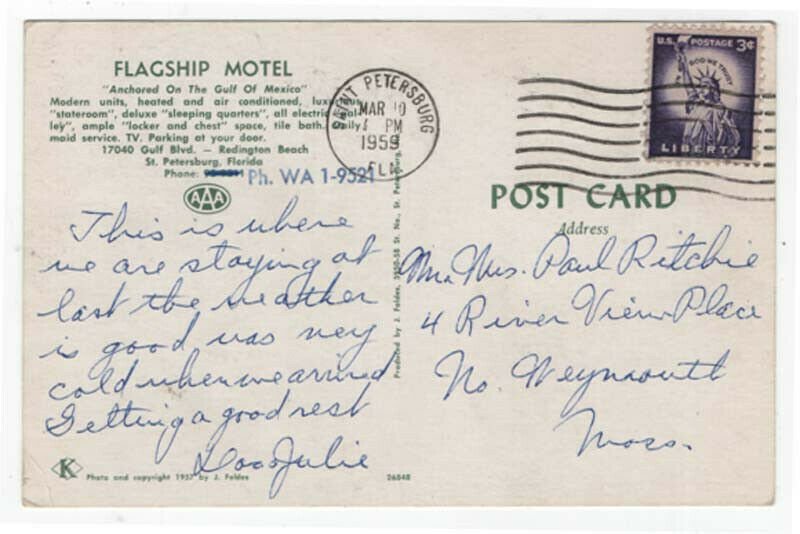 FLAGSHIP MOTEL
"Anchored On The Gulf Of Mexico"
Modern units, heated and air conditioned,
"stateroom", deluxe "sleeping quarters", all
ley", ample "locker and chest" space, tile bath. Daily
maid service. TV. Parking at your door.
17040 Gulf Blvd. — Redington Beach
St. Petersburg, Florida
Phone: Ph. WA 1-9521
AAA
This is where
we are staying at
last the weather
is good was very
cold when we arrived
Getting a good rest
Julie
K
Photo and copyright 1957 by J. Feldes
26848
Produced by J. Feldes, St. No., St. Petersburg,
SAINT PETERSBURG
MAR 10
PM
1959
FLA
U.S. POSTAGE 3¢
GOD WE TRUST
LIBERTY
POST CARD
Address
Mr. Mrs. Paul Ritchie
4 River View Place
No. Weymouth
Mass.